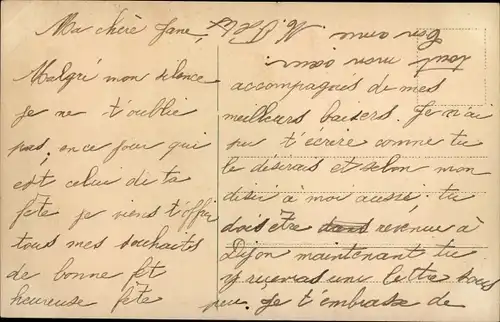 Ma chère Jane,
Malgré mon silence
je ne t'oublie
pas, en ce jour qui
est celui de ta
fête je viens t'offrir
tous mes souhaits
de bonne et
heureuse fête
accompagnés de mes
meilleurs baisers. Je n'ai
pu t'écrire comme tu
le désirais et selon mon
désir à moi aussi. tu
dois être revenue à
Dijon maintenant tu
y recevras une lettre sous
peu. Je t'embrasse de
tout mon cœur
Ton amie